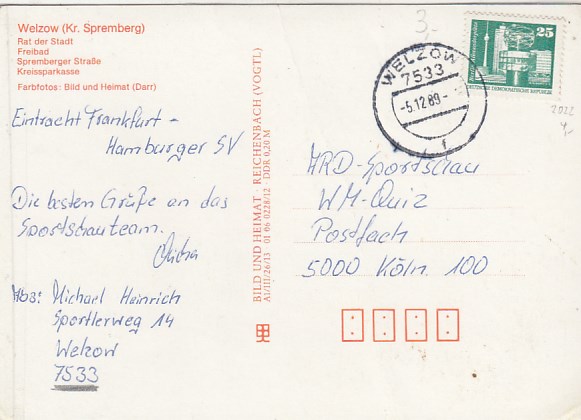 Welzow (Kr. Spremberg)
Rat der Stadt
Freibad
Spremberger Straße
Kreissparkasse
Farbfotos: Bild und Heimat (Darr)
Eintracht Frankfurt -
Hamburger SV
Die besten Grüße an das
Sportschauteam.
Micha
Abs: Michael Heinrich
Sportlerweg 14
Welzow
7533
BILD UND HEIMAT REICHENBACH (VOGTL)
A1/III/26/13 01 06 0228/12 · DDR 0,20 M
3,-
25
DEUTSCHE DEMOKRATISCHE REPUBLIK
WELZOW
7533
-5.12.89-
f
2022
ARD-Sportschau
WM-Quiz
Postfach
5000 Köln 100